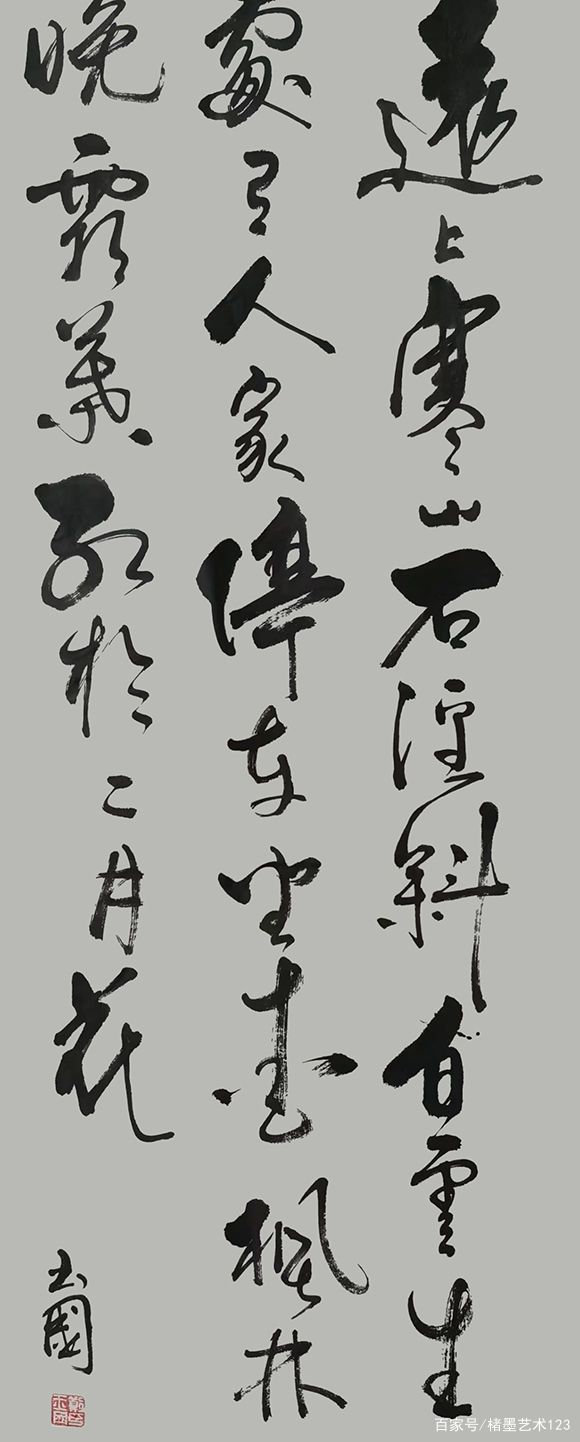 遠上寒山石徑斜白雲生
處有人家停車坐愛楓林
晚霜葉紅於二月花
玉國
百家号/楮墨艺术123